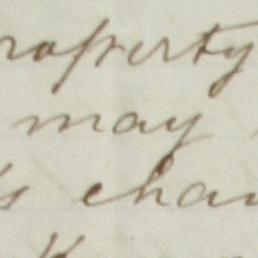 property
may
's chan